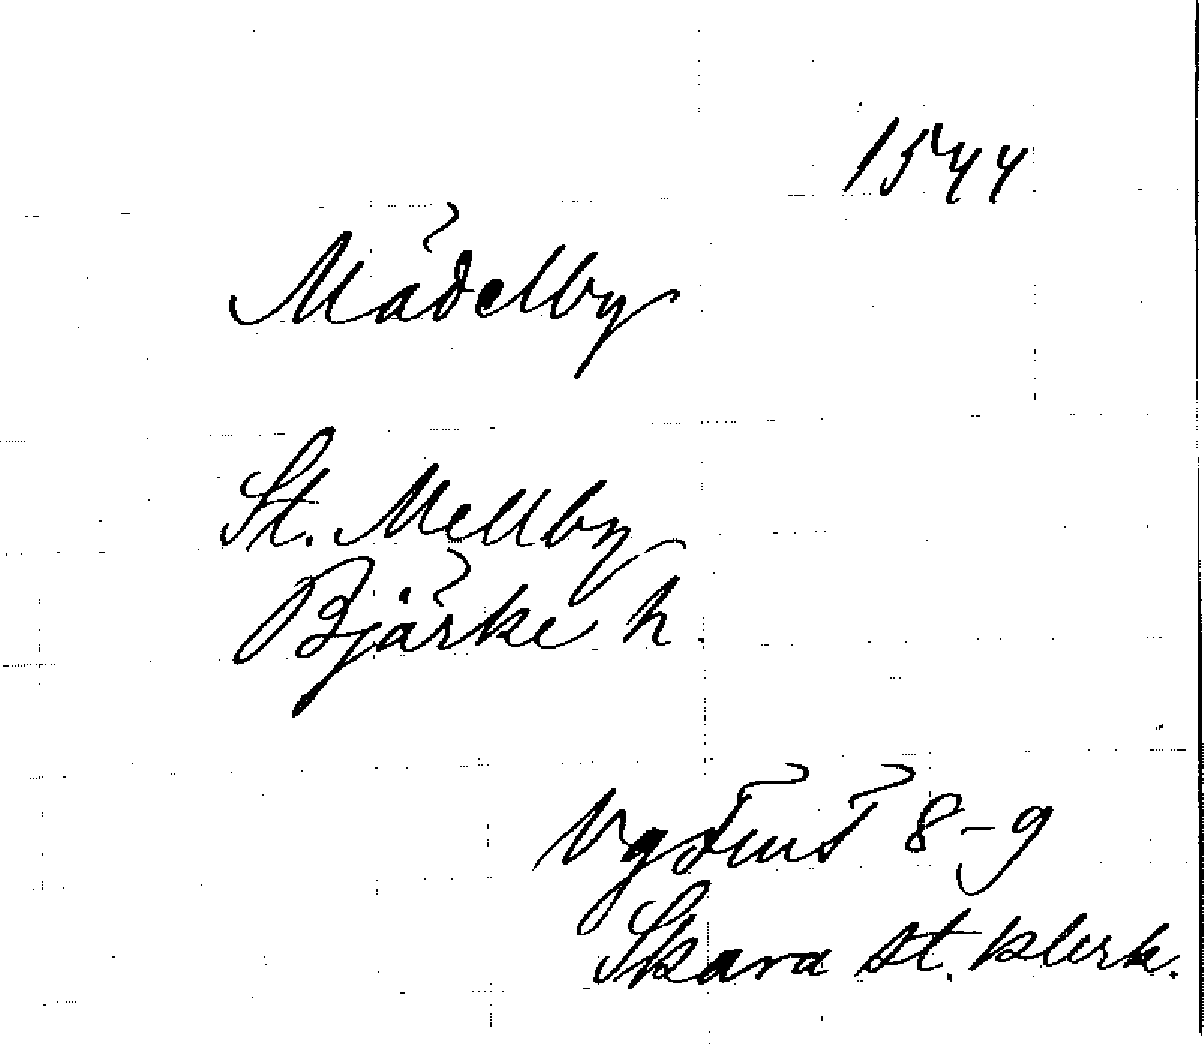 1544
Mädelby
St. Mellby
Bjärke h.
8-9
Skara st. klerk.